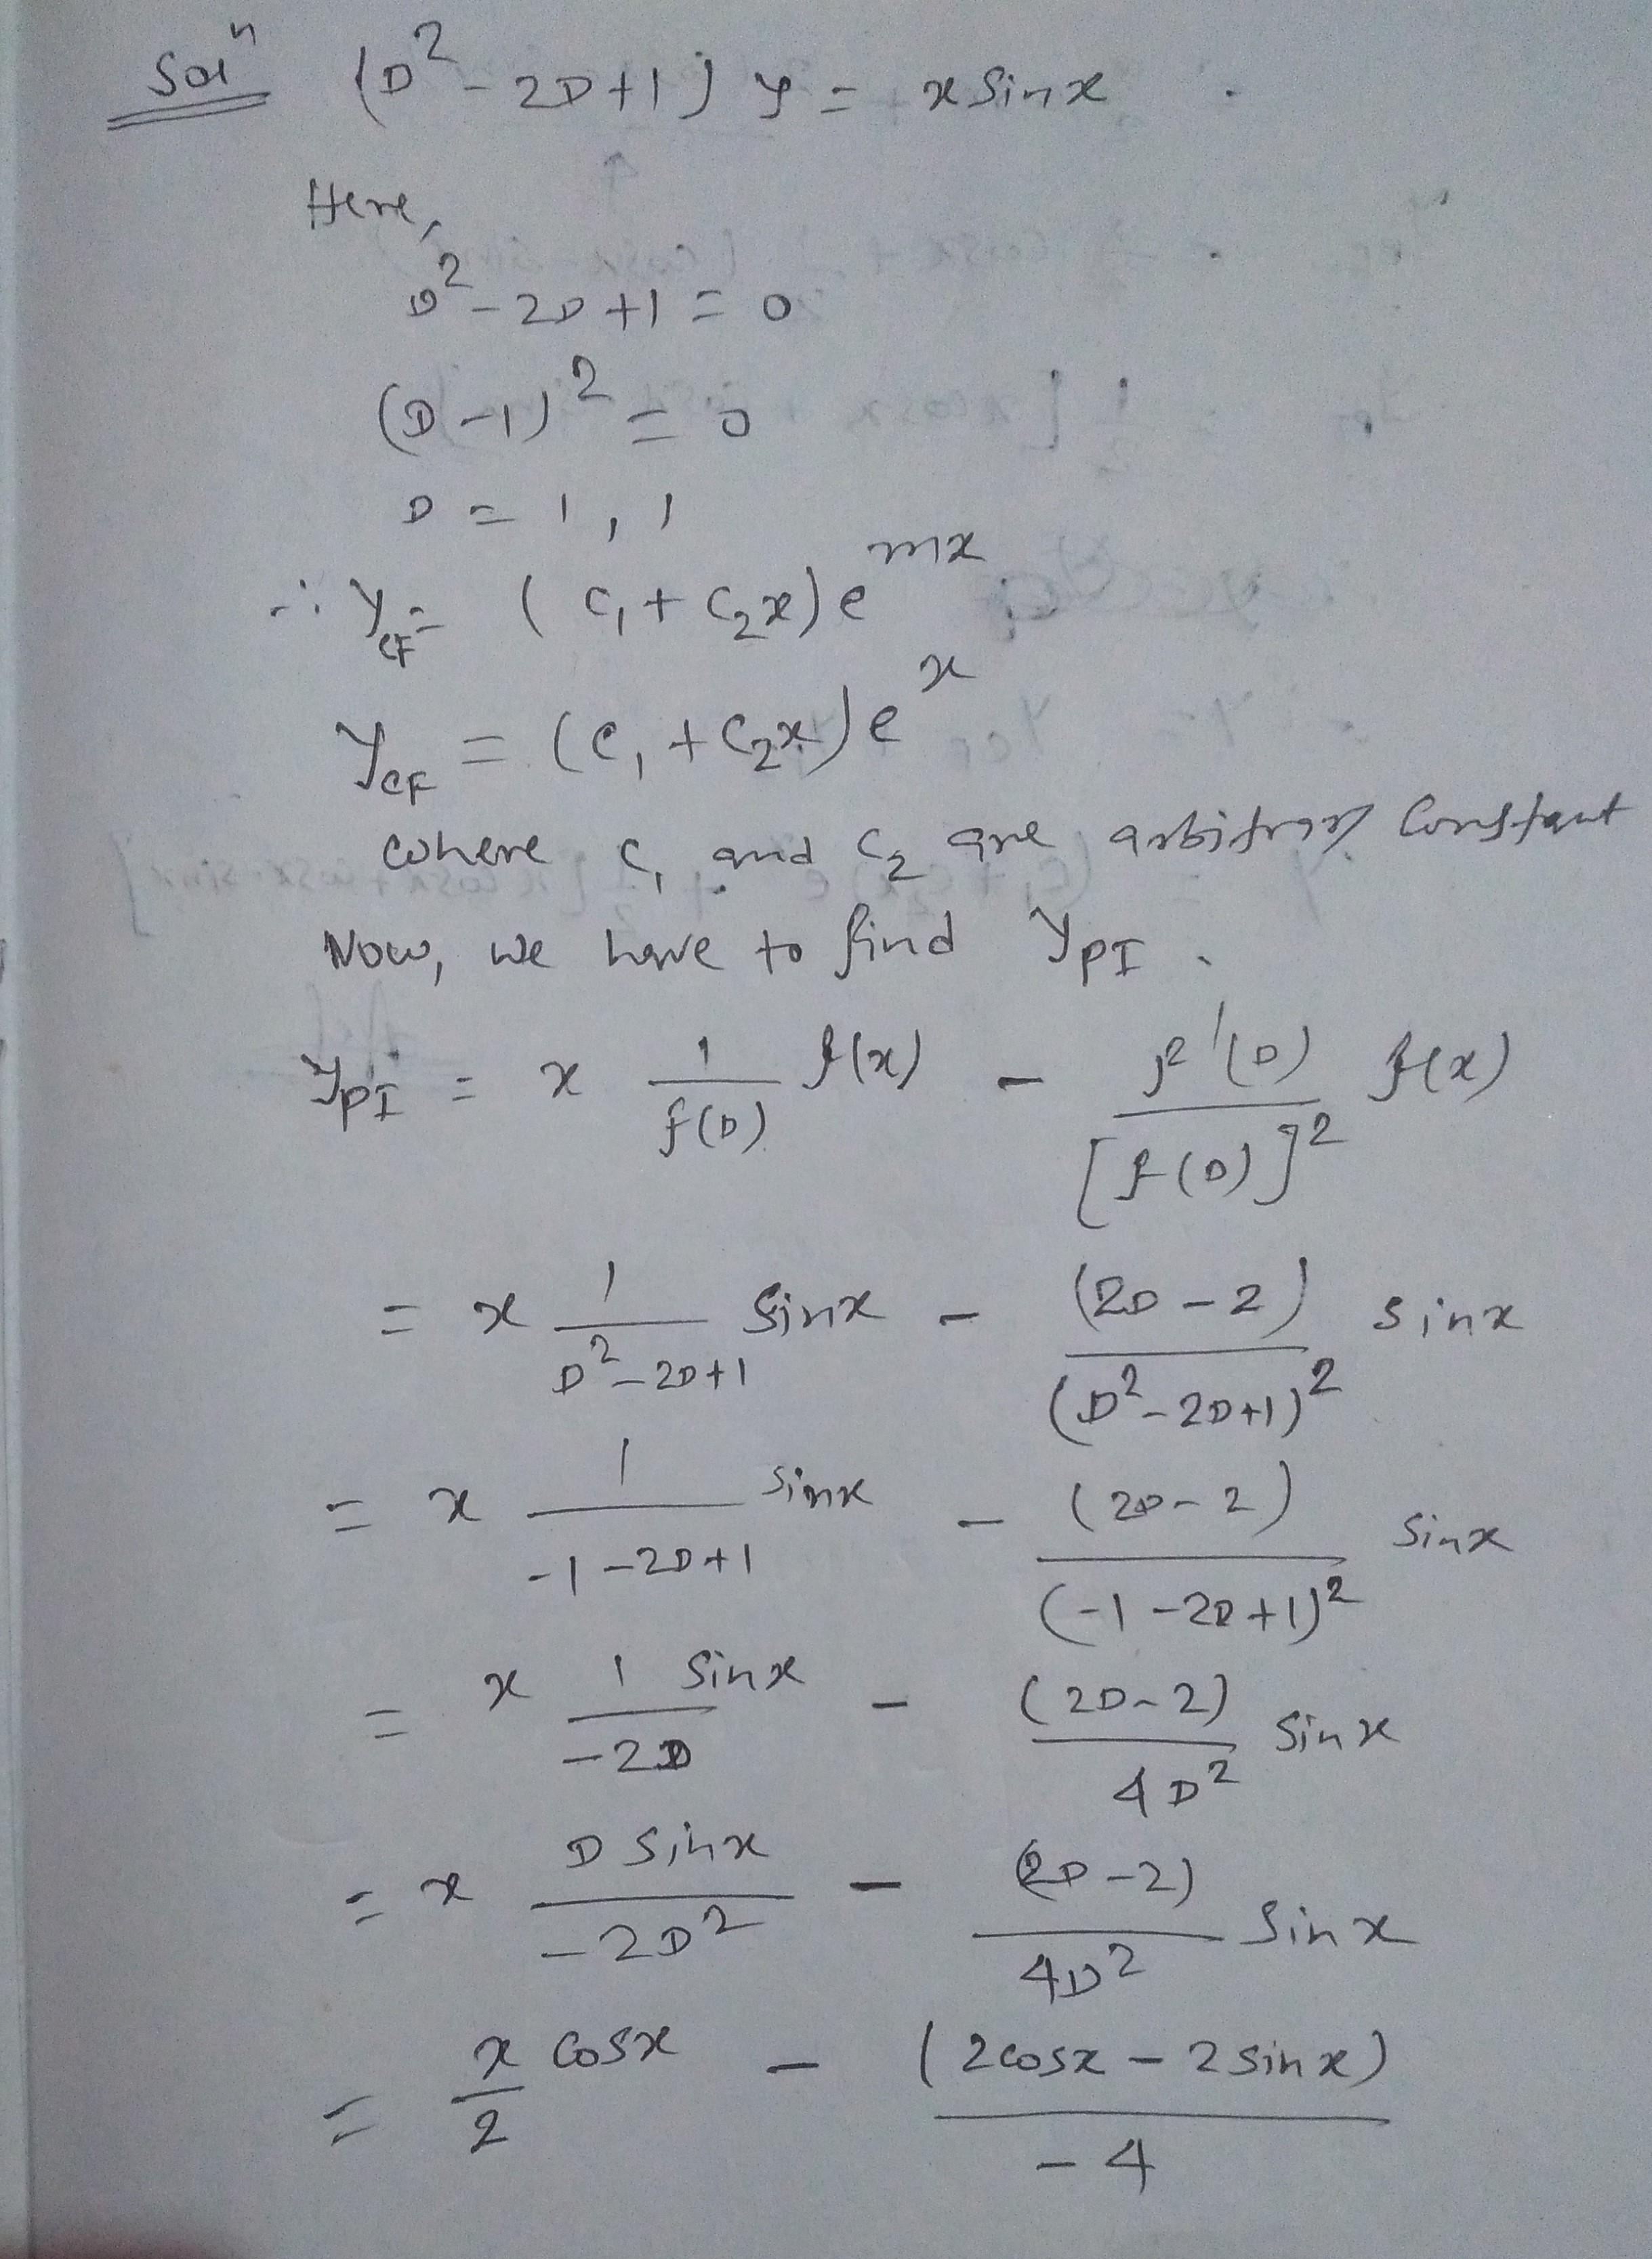 Solⁿ (D² - 2D + 1) y = x Sinx
Here,
D² - 2D + 1 = 0
(D - 1)² = 0
D = 1, 1
∴ y_CF = (C₁ + C₂x) e^mx
y_CF = (C₁ + C₂x) e^x
where C₁ and C₂ are arbitrary Constant
Now, we have to find y_PI.
y_PI = x 1/f(D) f(x) - f'(D)/[f(D)]² f(x)
= x 1/(D² - 2D + 1) Sinx - (2D - 2)/(D² - 2D + 1)² sinx
= x 1/(-1 - 2D + 1) sinx - (2D - 2)/(-1 - 2D + 1)² Sinx
= x 1/(-2D) Sinx - (2D - 2)/4D² Sinx
= x D Sinx/(-2D²) - (2D - 2)/4D² Sinx
= x/2 Cosx - (2cosx - 2sinx)/(-4)